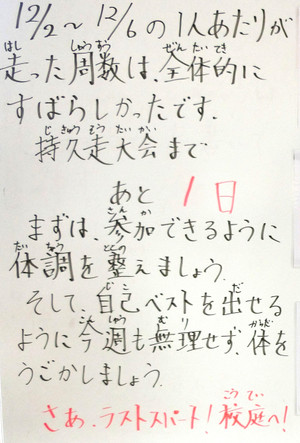 12/2～12/6の1人あたりが
走った周数は、全体的に
すばらしかったです。
持久走大会まで
あと 1日
まずは、参加できるように
体調を整えましょう。
そして、自己ベストを出せる
ように今週も無理せず、体を
うごかしましょう。
さあ、ラストスパート!校庭へ!